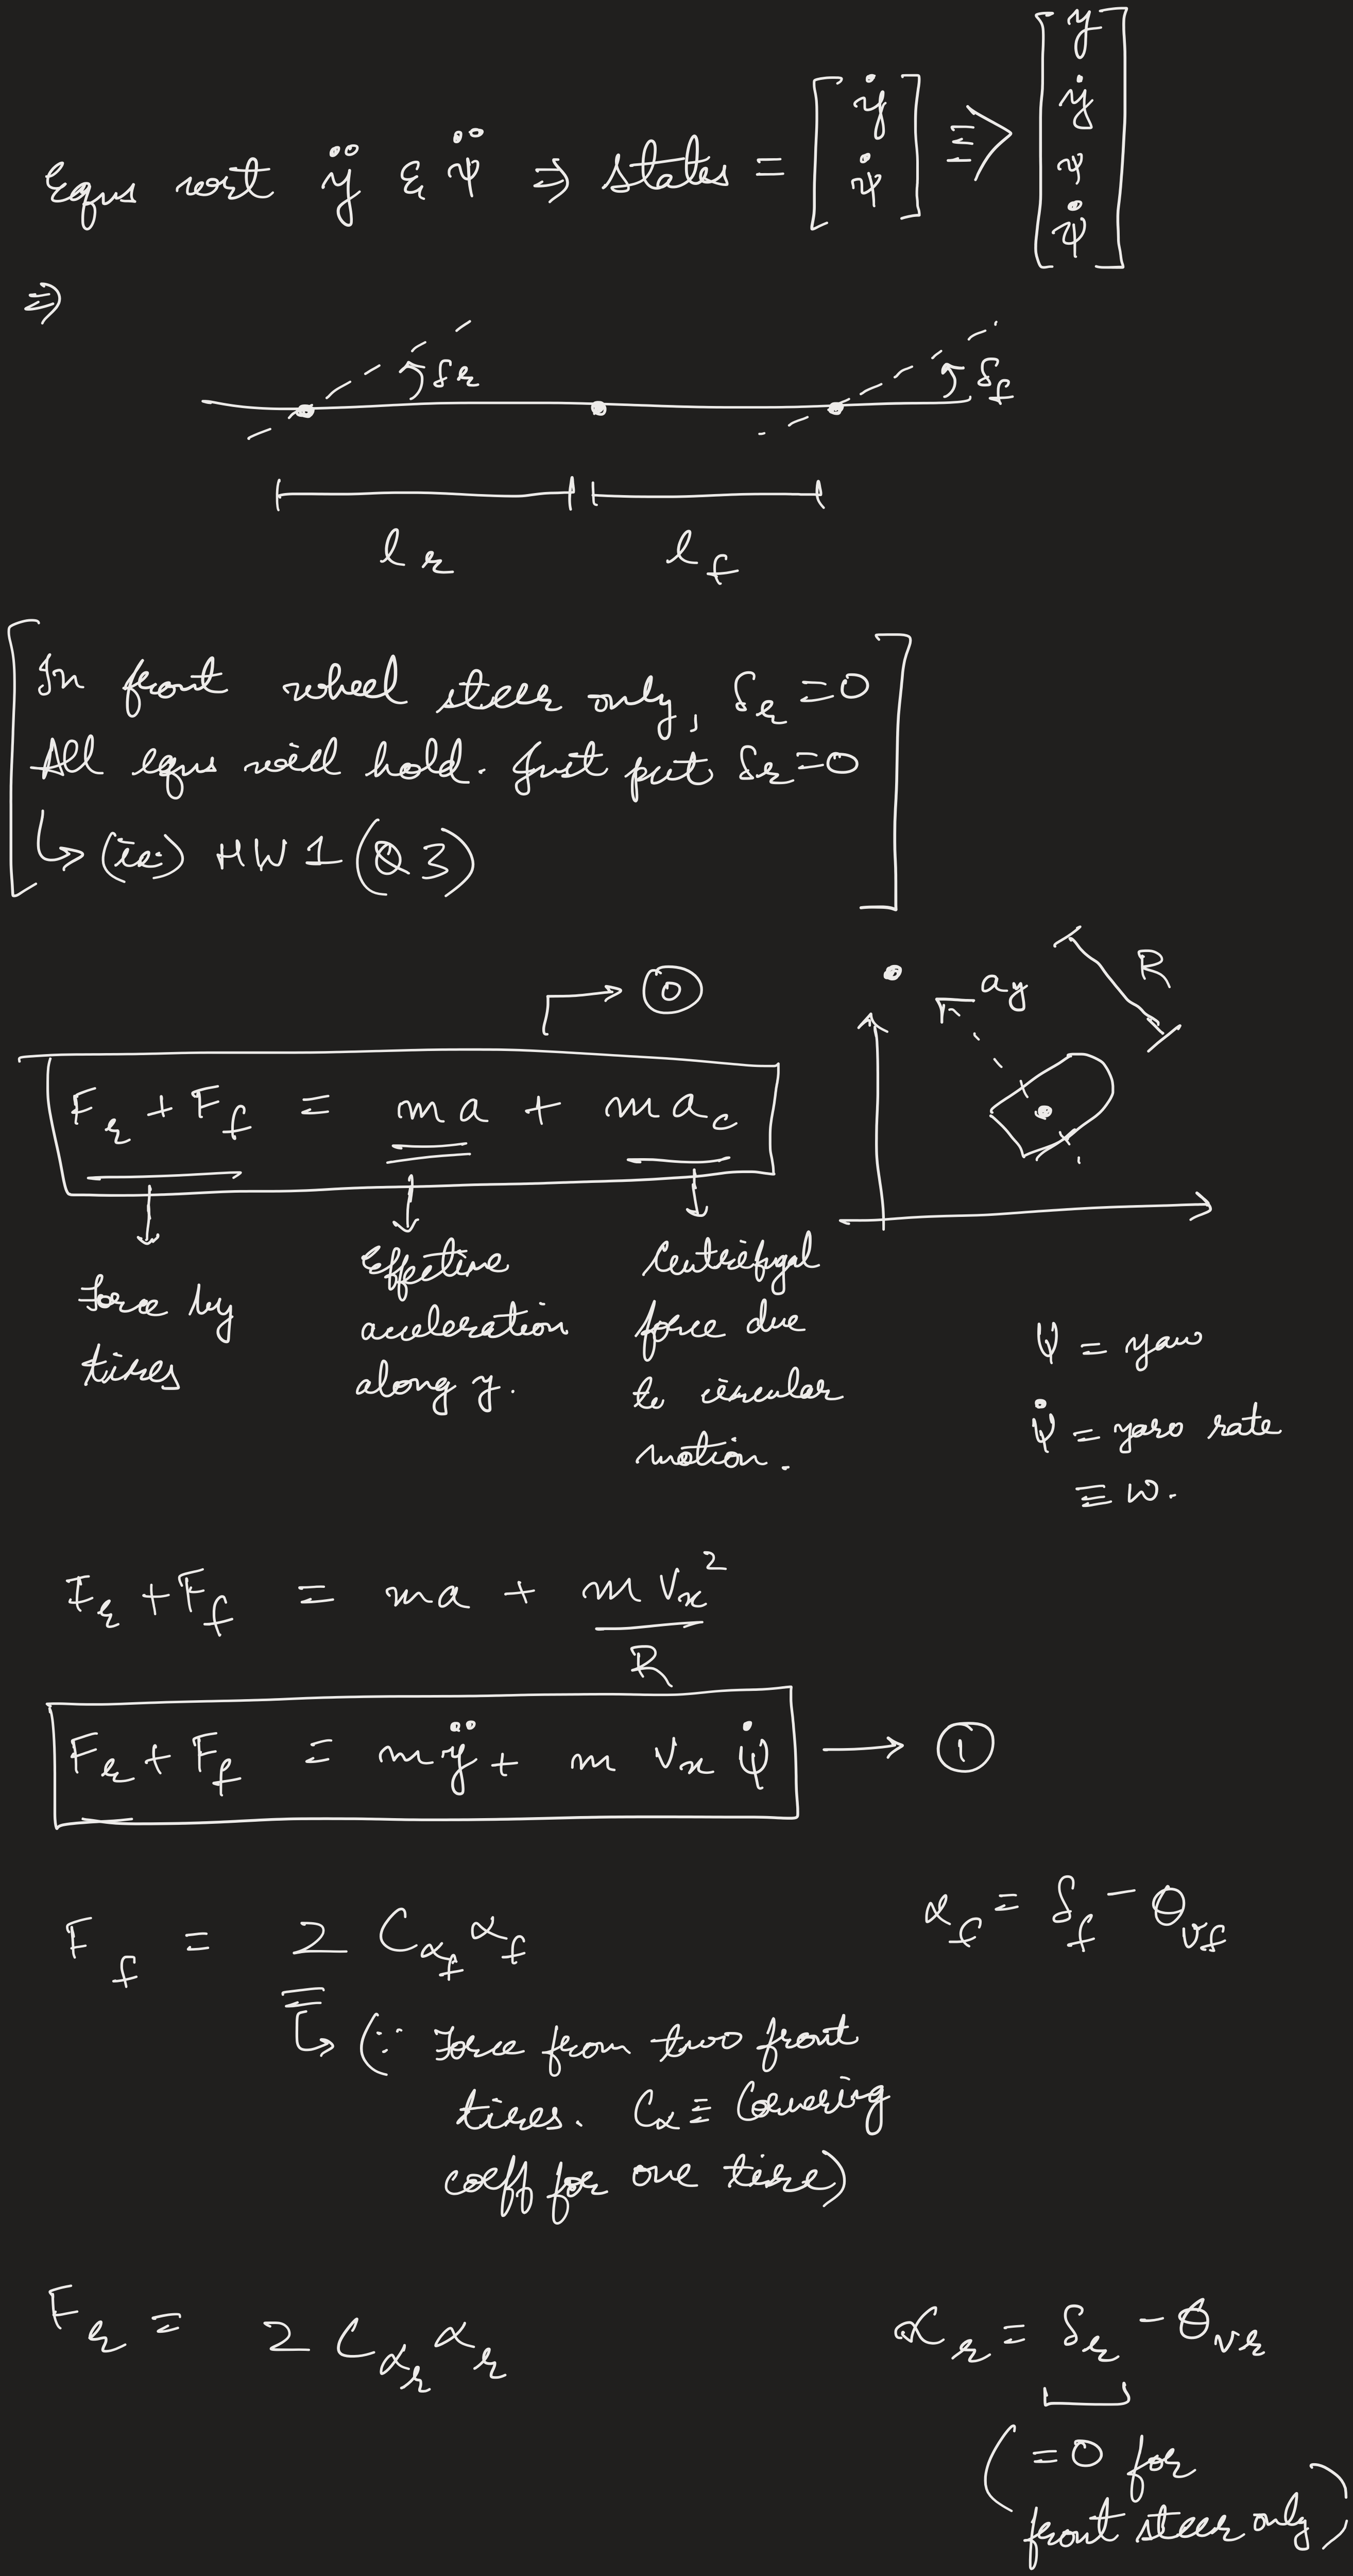 Eqns wrt ÿ & ψ̈ ⇒ states = [ẏ ψ̇] ≡> [y ẏ ψ ψ̇]
⇒
δr δf
lr lf
In front wheel steer only, δr = 0
All eqns will hold. Just put δr = 0
↳ (ie:) HW 1 (Q3)
→ ⓪
Fr + Ff = ma + mac
ay R
Force by tires
Effective acceleration along y.
Centrifugal force due to circular motion.
ψ = yaw
ψ̇ = yaw rate
≡ ω.
Fr + Ff = ma + mVx²/R
Fr + Ff = mÿ + m Vx ψ̇ → ①
Ff = 2 Cαf αf αf = δf - θvf
↳ (∵ Force from two front
tires. Cα ≡ Cornering
coeff for one tire)
Fr = 2 Cαr αr αr = δr - θvr
(= 0 for
front steer only)